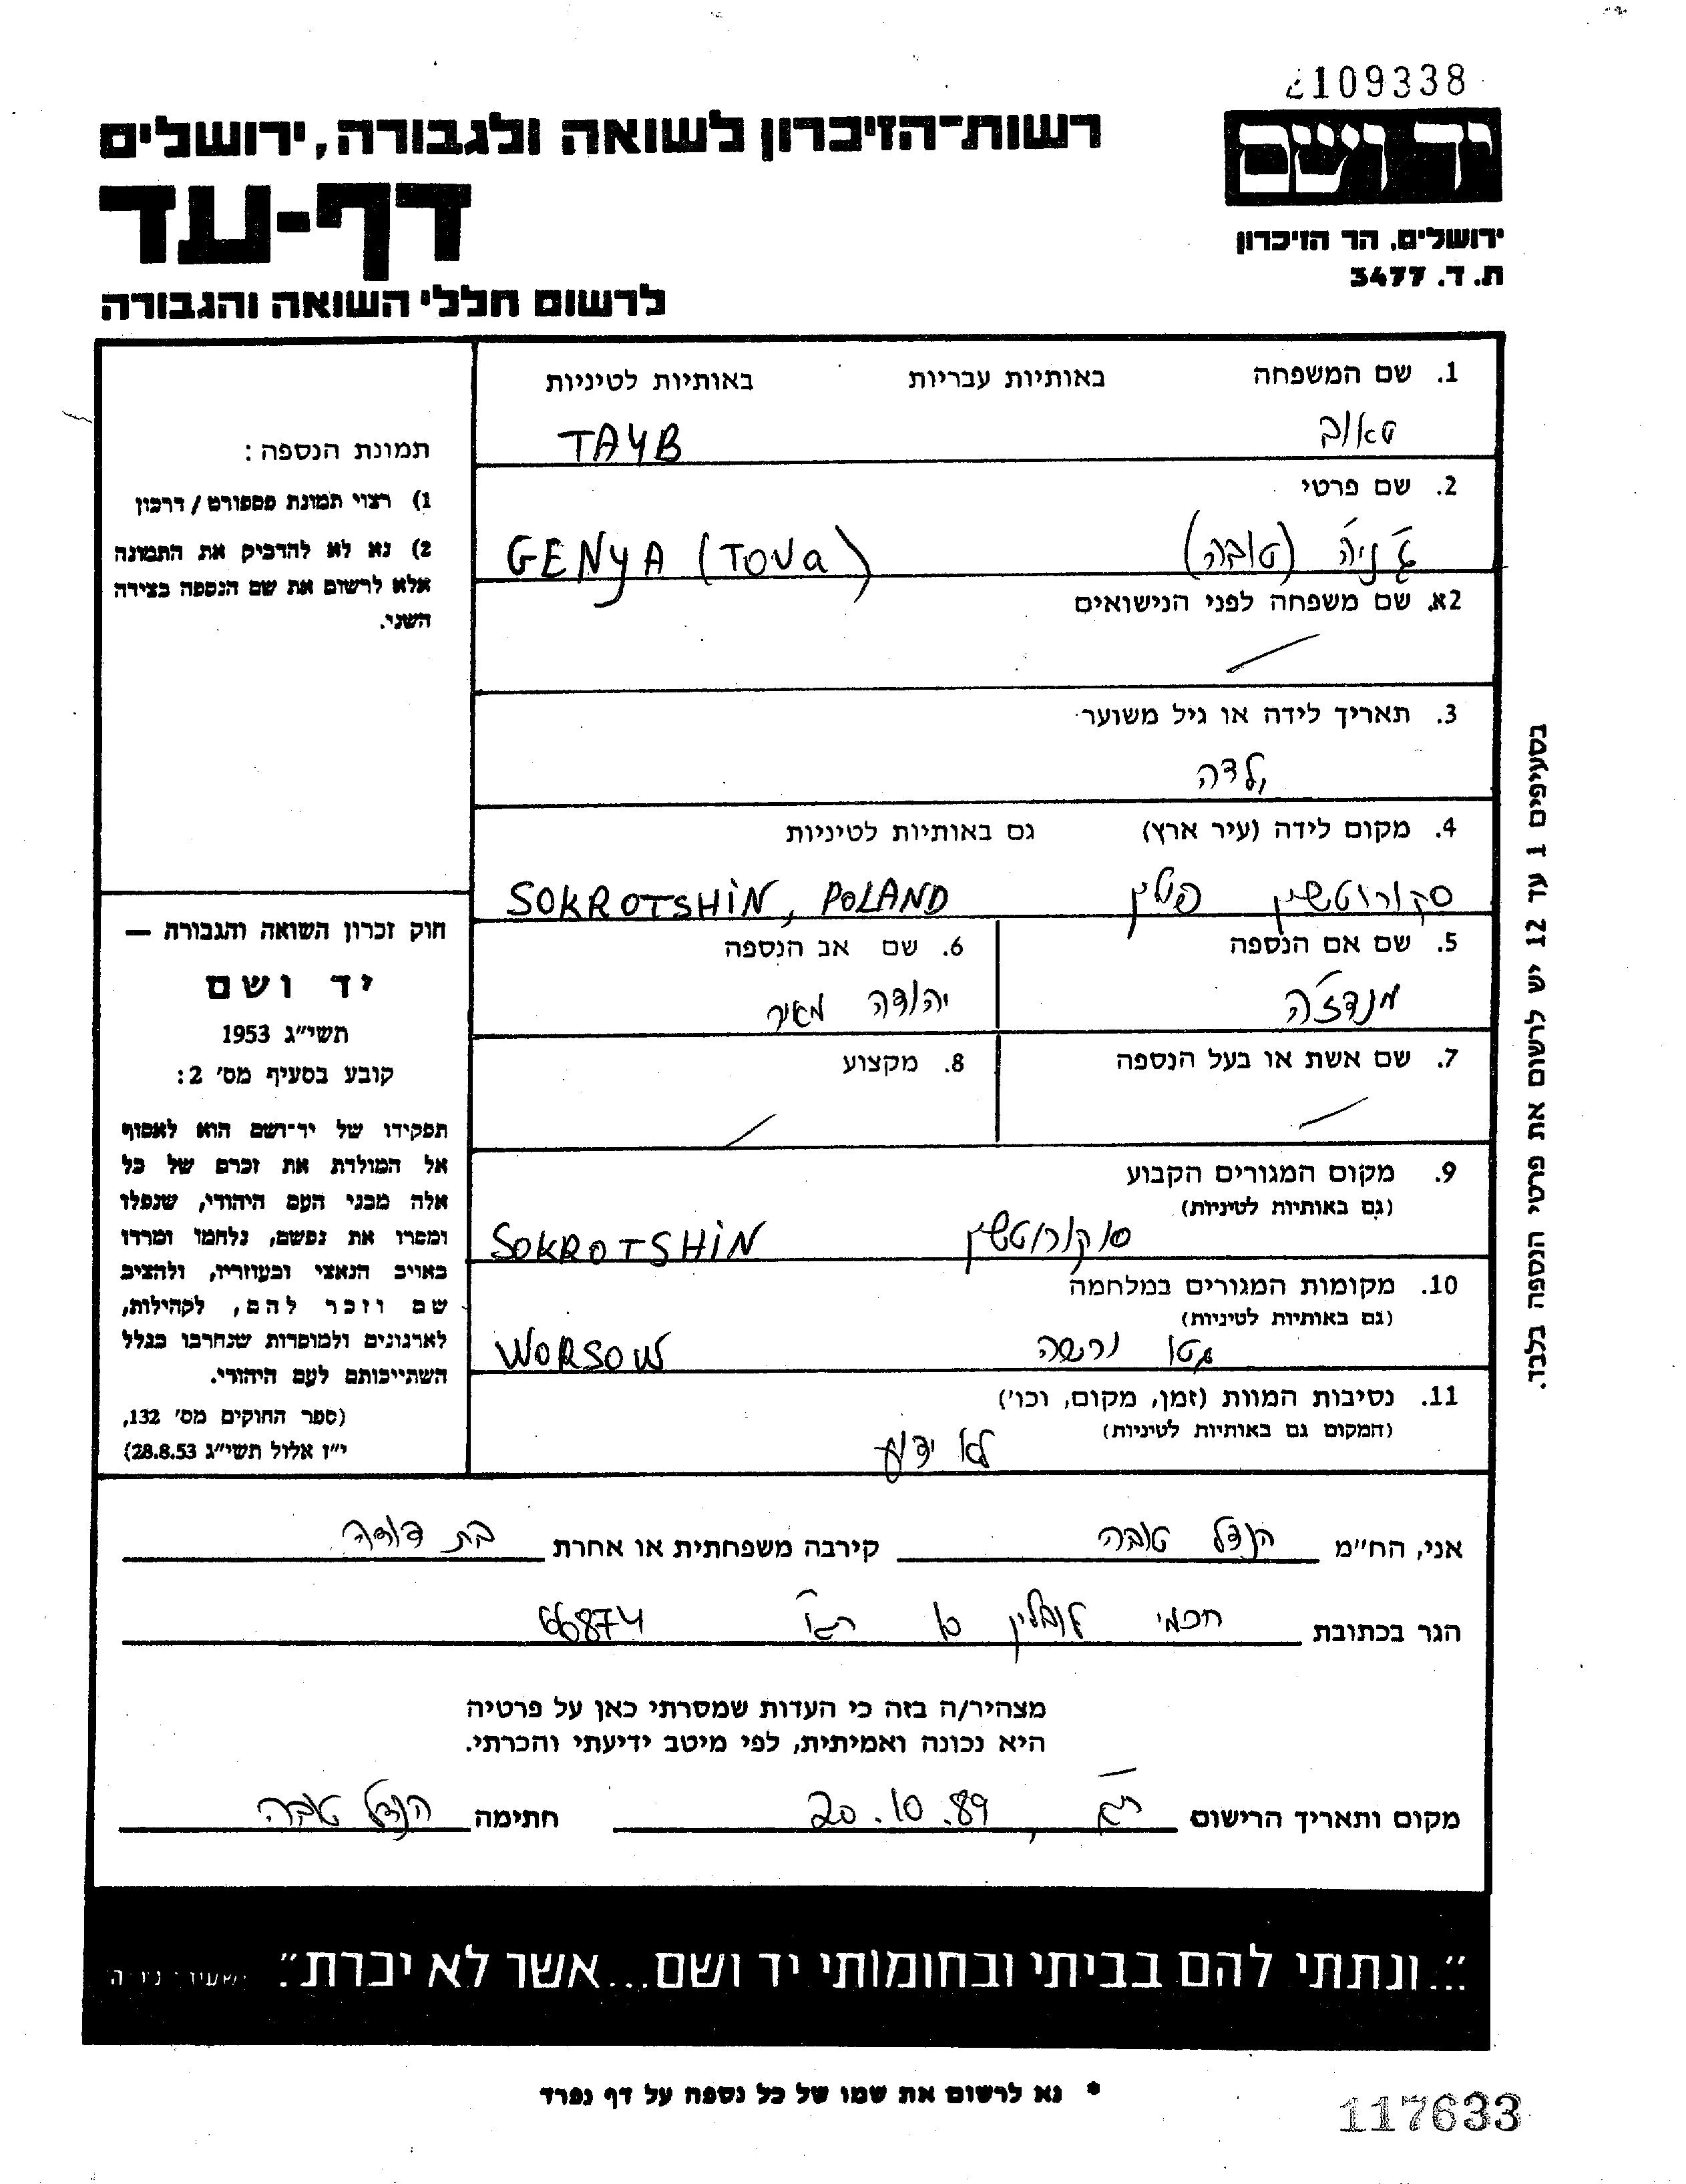 2109338
רשות-הזיכרון לשואה ולגבורה, ירושלים
יד ושם
דף-עד
ירושלים, הר הזיכרון
ת. ד. 3477
לרשום חללי השואה והגבורה
1. שם המשפחה באותיות עבריות באותיות לטיניות
טאוב TAYB
2. שם פרטי
ג'ניה (טובה) GENYA (TOVa)
2א. שם משפחה לפני הנישואים
3. תאריך לידה או גיל משוער
ילדה
4. מקום לידה (עיר ארץ) גם באותיות לטיניות
סקורוטשין פולין SOKROTSHIN, POLAND
5. שם אם הנספה 6. שם אב הנספה
מנדז'ה יהודה מאיר
7. שם אשת או בעל הנספה 8. מקצוע
9. מקום המגורים הקבוע
(גם באותיות לטיניות)
סוקורוטשין SOKROTSHIN
10. מקומות המגורים במלחמה
(גם באותיות לטיניות)
גטו ורשה WORSOW
11. נסיבות המוות (זמן, מקום, וכו')
(המקום גם באותיות לטיניות)
לא ידוע
תמונת הנספה:
1) רצוי תמונת פספורט / דרכון
2) נא לא להדביק את התמונה
אלא לרשום את שם הנספה בצידה
השני.
חוק זכרון השואה והגבורה —
יד ושם
תשי"ג 1953
קובע בסעיף מס' 2:
תפקידו של יד-ושם הוא לאסוף
אל המולדת את זכרם של כל
אלה מבני העם היהודי, שנפלו
ומסרו את נפשם, נלחמו ומרדו
באויב הנאצי ובעוזריו, ולהציב
שם וזכר להם, לקהילות,
לארגונים ולמוסדות שנחרבו בגלל
השתייכותם לעם היהודי.
(ספר החוקים מס' 132,
י"ז אלול תשי"ג 28.8.53)
בסעיפים 1 עד 12 יש לרשום את פרטי הנספה בלבד.
אני, הח"מ הנדל טובה קירבה משפחתית או אחרת בת דודה
הגר בכתובת חכמי לובלין 66874
מצהיר/ה בזה כי העדות שמסרתי כאן על פרטיה
היא נכונה ואמיתית, לפי מיטב ידיעתי והכרתי.
מקום ותאריך הרישום ת"א, 20.10.89 חתימה הנדל טובה
"...ונתתי להם בביתי ובחומותי יד ושם...אשר לא יכרת".
* נא לרשום את שמו של כל נספה על דף נפרד
117633